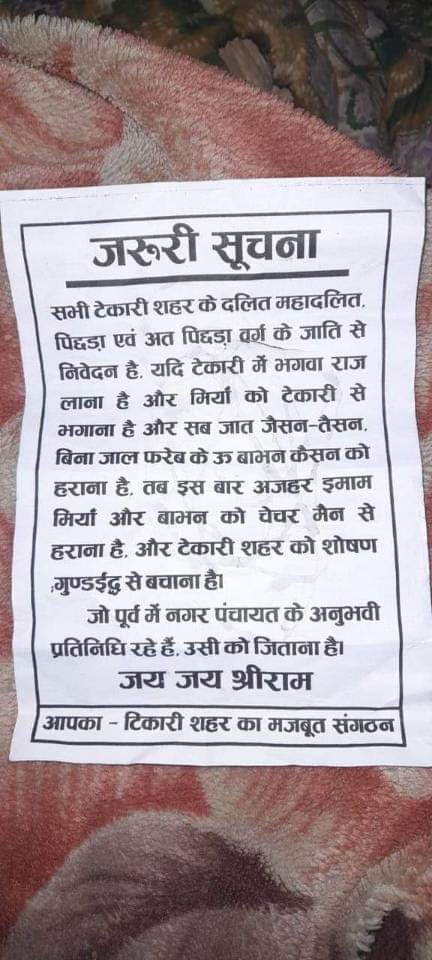 जरुरी सूचना
सभी टेकारी शहर के दलित महादलित,
पिछड़ा एवं अत पिछड़ा वर्ग के जाति से
निवेदन है, यदि टेकारी में भगवा राज
लाना है और मियाँ को टेकारी से
भगाना है और सब जात जैसन-तैसन,
बिना जाल फरेब के ऊ बाभन कैसन को
हराना है, तब इस बार अजहर इमाम
मियाँ और बाभन को चेचर मैन से
हराना है, और टेकारी शहर को शोषण
,गुण्डईदु से बचाना है।
जो पूर्व में नगर पंचायत के अनुभवी
प्रतिनिधि रहे हैं, उसी को जिताना है।
जय जय श्रीराम
आपका - टिकारी शहर का मजबूत संगठन